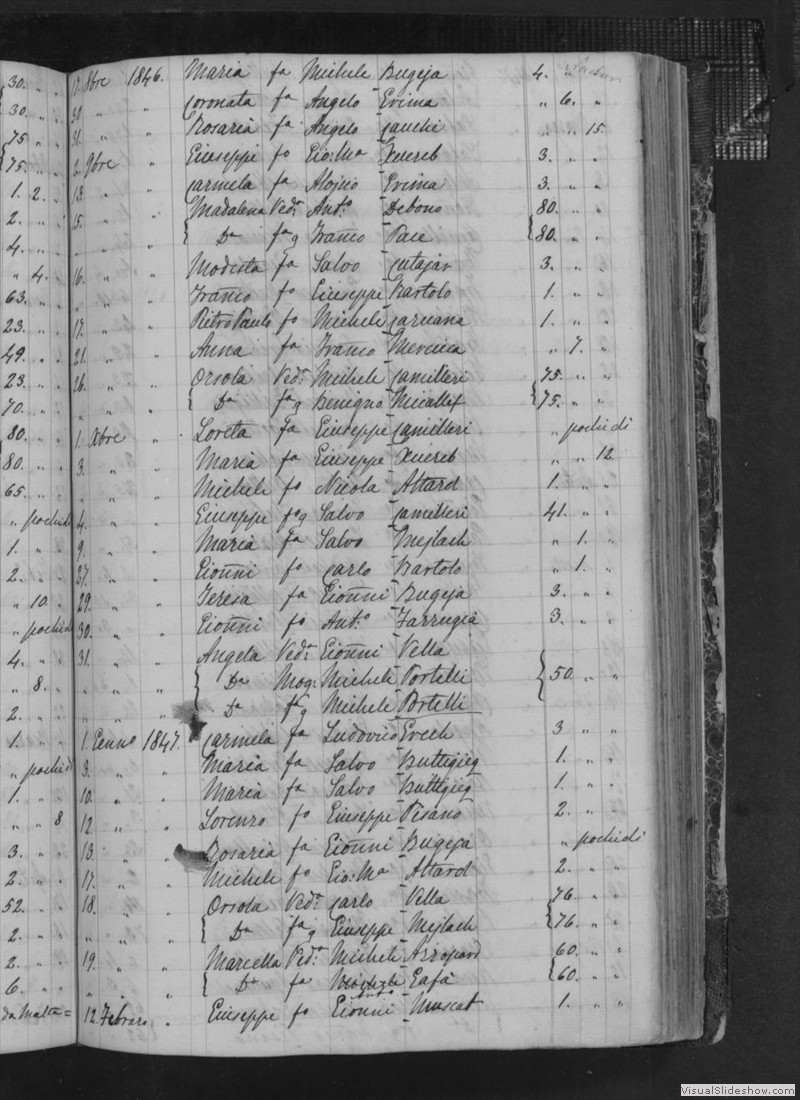 30. " " 17. 8bre 1846. Maria fa Michele Bugeja 4. "
30. " " 30 " " Coronata fa Angelo Erima " 6. "
75 " " 31. " " Rosaria fa Angelo Cauchi " " 15.
75. " " 2. 9bre " Giuseppe fo Gio: Ma Xuereb 3. " "
1. 2. " 13. " " Carmela fa Aloisio Erima 3. " "
2. " " 15. " " Madalena Ved: Anto Debono 80. " "
4. " " " " " Da fa q Franco Pace 80. " "
" 4. " 16. " " Modesta fa Salvo Cutajar 3. " "
63. " " " " " Franco fo Giuseppe Bartolo 1. " "
23. " " 17. " " Pietro Paulo fo Michele Caruana 1. " "
49. " " 21. " " Anna fa Franco Mercieca " 7. "
23. " " 26. " " Orsola Ved: Michele Camilleri 75. " "
70. " " " " " Da fa q Benigno Micallef 75. " "
80. " " 1. Xbre " Loreta fa Giuseppe Camilleri " pochi di
80. " " 3. " " Maria fa Giuseppe Xuereb " " 12
65. " " " " " Michele fo Nicola Attard 1. " "
" pochi di 4. " " Giuseppe fo q Salvo Camilleri 41. " "
1. " " 9. " " Maria fa Salvo Mejlach " 1. "
2. " " 27. " " Gionni fo Carlo Bartolo " 1. "
" 10. " 29. " " Teresa fa Gionni Bugeja 3. " "
" pochi di 30. " " Gionni fo Anto Farrugia 3. " "
4. " " 31. " " Angela Ved: Gionni Vella
" 8. " " " " Da Mog: Michele Portelli 50. " "
2. " " " " " Da fa q Michele Portelli
1. " " 1. Genno 1847. Carmela fa Ludovico Erech 3 " "
" pochi di 3. " " Maria fa Salvo Buttigieg 1. " "
1. " " 10. " " Maria fa Salvo Buttigieg 1. " "
" " 8 12. " " Lorenzo fo Giuseppe Pisano 2. " "
3. " " 13. " " Rosaria fa Gionni Bugeja " pochi di
2. " " 17. " " Michele fo Gio: Ma Attard 2. " "
52. " " 18. " " Orsola Ved: Carlo Vella 76. " "
2. " " " " " Da fa q Giuseppe Mejlach 76. " "
2. " " 19. " " Marcella Ved: Michele Azzopard 60. " "
6. " " " " " Da fa Gafà 60. " "
da Malta = 12. Febraro " Giuseppe fo Gionni Muscat 1. " "
VisualSlideshow.com